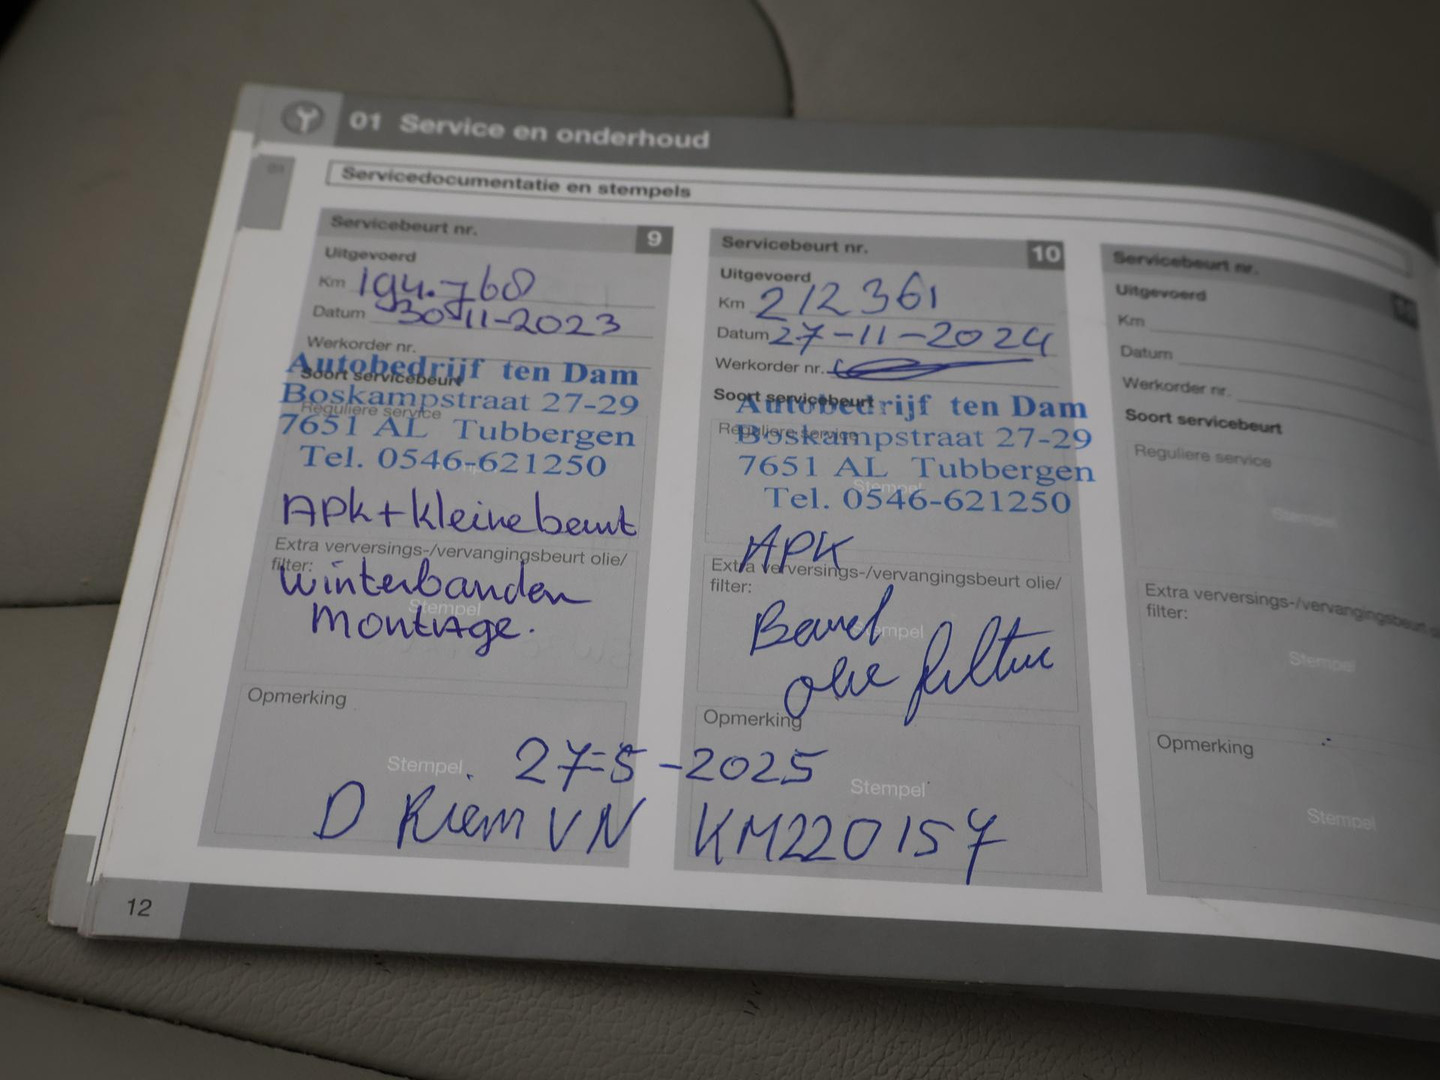 01 Service en onderhoud
Servicedocumentatie en stempels
Servicebeurt nr. 9
Uitgevoerd
Km 194.768
Datum 30-11-2023
Werkorder nr.
Soort servicebeurt
Reguliere service
Autobedrijf ten Dam
Boskampstraat 27-29
7651 AL Tubbergen
Tel. 0546-621250
APK + kleine beurt
Extra verversings-/vervangingsbeurt olie/
filter:
Winterbanden
Stempel
Montage.
Opmerking
Stempel
Servicebeurt nr. 10
Uitgevoerd
Km 212361
Datum 27-11-2024
Werkorder nr.
Soort servicebeurt
Reguliere service
Autobedrijf ten Dam
Boskampstraat 27-29
7651 AL Tubbergen
Stempel
Tel. 0546-621250
APK
Extra verversings-/vervangingsbeurt olie/
filter:
Stempel
olie filter
Opmerking
Stempel
27-5-2025
D Riem VN KM220157
Servicebeurt nr.
Uitgevoerd
Km
Datum
Werkorder nr.
Soort servicebeurt
Reguliere service
Stempel
Extra verversings-/vervangingsbeurt
filter:
Stempel
Opmerking
Stempel
12